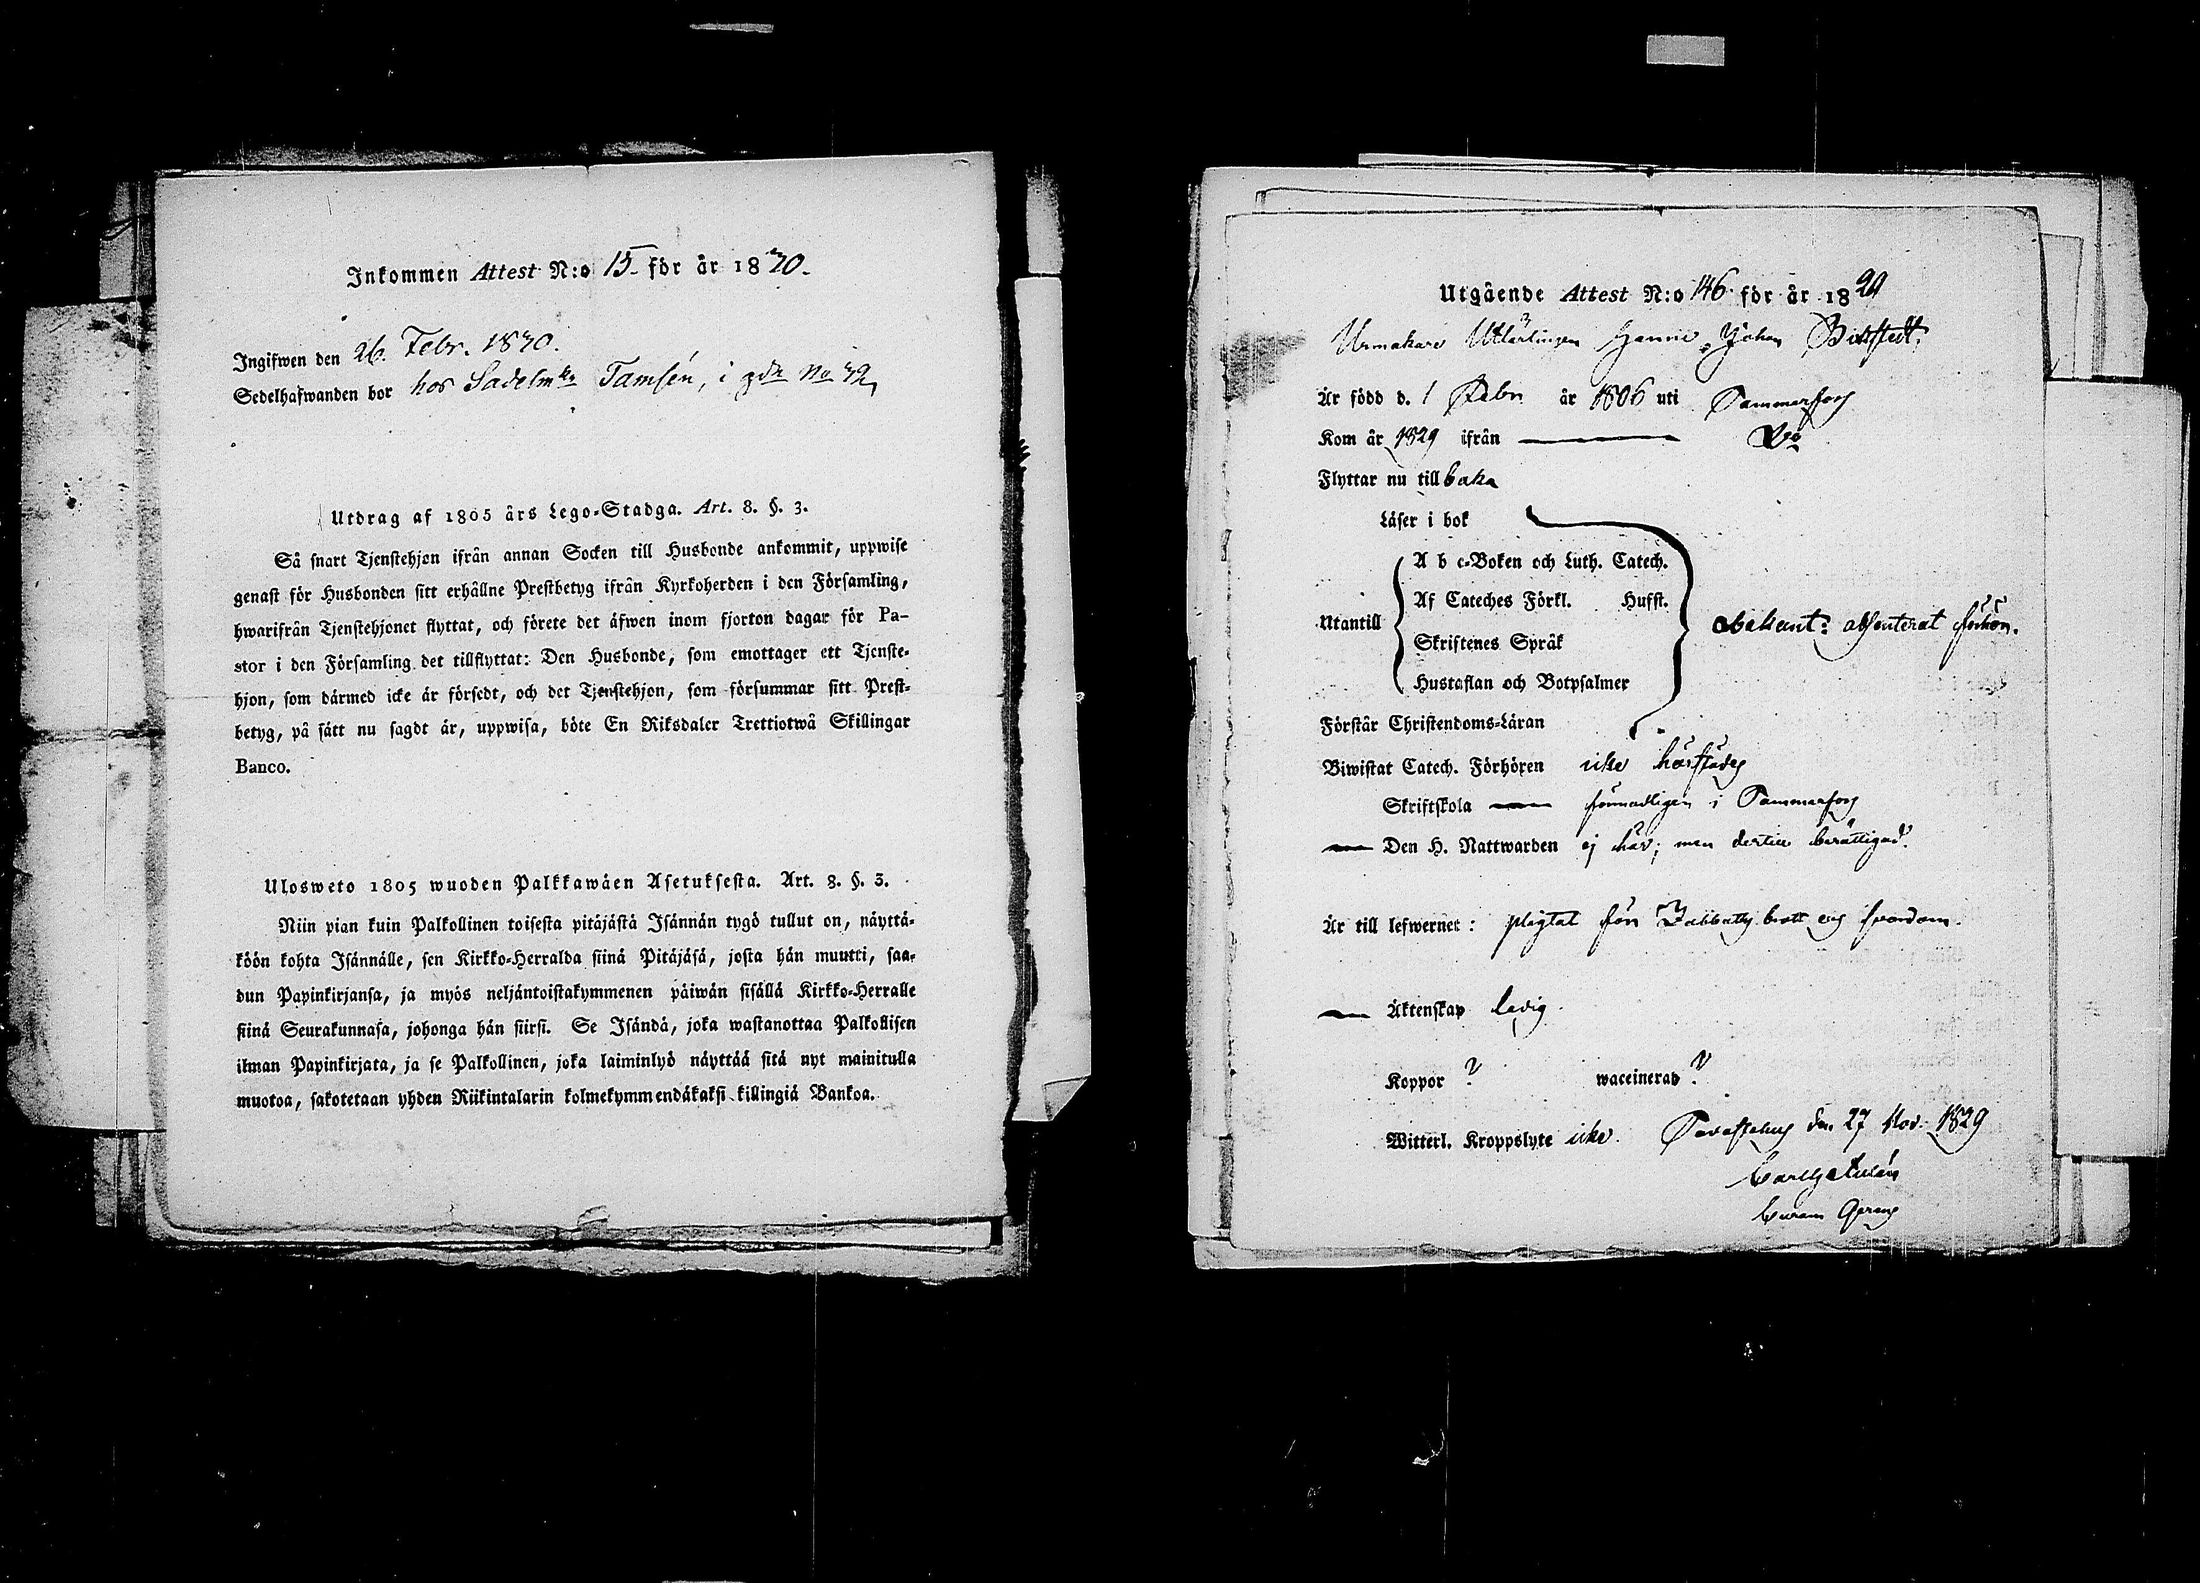 Inkommen Attest N:o 15 för år 1830.
Ingifwen den 26. Febr. 1830.
Sedelhafwanden bor hos Sadelmkn Tamsén, i gdn No 42,
Utdrag af 1805 års Lego-Stadga. Art. 8. §. 3.
Så snart Tjenstehjon ifrån annan Socken till Husbonde ankommit, uppwise
genast för Husbonden sitt erhållne Prestbetyg ifrån Kyrkoherden i den Församling,
hwarifrån Tjenstehjonet flyttat, och förete det äfwen inom fjorton dagar för Pa-
stor i den Församling det tillflyttat: Den Husbonde, som emottager ett Tjenste-
hjon, som därmed icke är försedt, och det Tjenstehjon, som försummar sitt Prest-
betyg, på sätt nu sagdt är, uppwisa, böte En Riksdaler Trettiotwå Skillingar
Banco.
Ulosweto 1805 wuoden Palkkawäen Asetuksesta. Art. 8. §. 3.
Niin pian kuin Palkollinen toisesta pitäjästä Isännän tygö tullut on, näyttä-
köön kohta Isännälle, sen Kirkko-Herralda siinä Pitäjäsä, josta hän muutti, saa-
dun Papinkirjansa, ja myös neljäntoistakymmenen päiwän sisällä Kirkko-Herralle
siinä Seurakunnasa, johonga hän siirsi. Se Isändä, joka wastanottaa Palkollisen
ilman Papinkirjata, ja se Palkollinen, joka laiminlyö näyttää sitä nyt mainitulla
muotoa, sakotetaan yhden Riikintalarin kolmekymmendäkaksi killingiä Bankoa.
Utgående Attest N:o 146. för år 1829
Urmakare Utlärlingen Johan
Är född d. 1 Febr. år 1806 uti Tammerfors
Kom år 1829 ifrån Do
Flyttar nu tillbaka
Läser i bok
Utantill
A b c-Boken och Luth. Catech.
Af Cateches Förkl. Hufst.
Skriftenes Språk
Hustaflan och Botpsalmer
obekant: absenterat förhör.
Förstår Christendoms-Läran
Biwistat Catech. Förhören icke härstädes
Skriftskola förmodligen i Tammerfors
Den H. Nattwarden ej här; men dertill berättigad.
Är till lefwernet: pligtat för Sabbatsbrott och
Äktenskap ledig.
Koppor ? waccinerad ?
Witterl. Kroppslyte icke. Tavastehus den 27 Nov. 1829